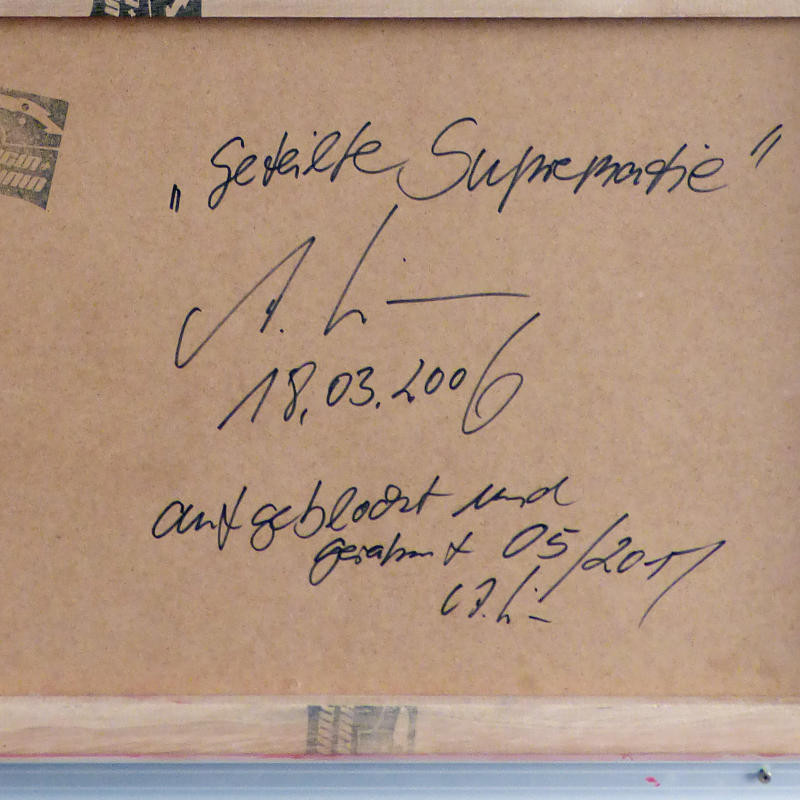 „Geteilte Suprematie"
A. Li
18.03.2006
aufgeblockt und
gerahmt 05/2011
A. Li